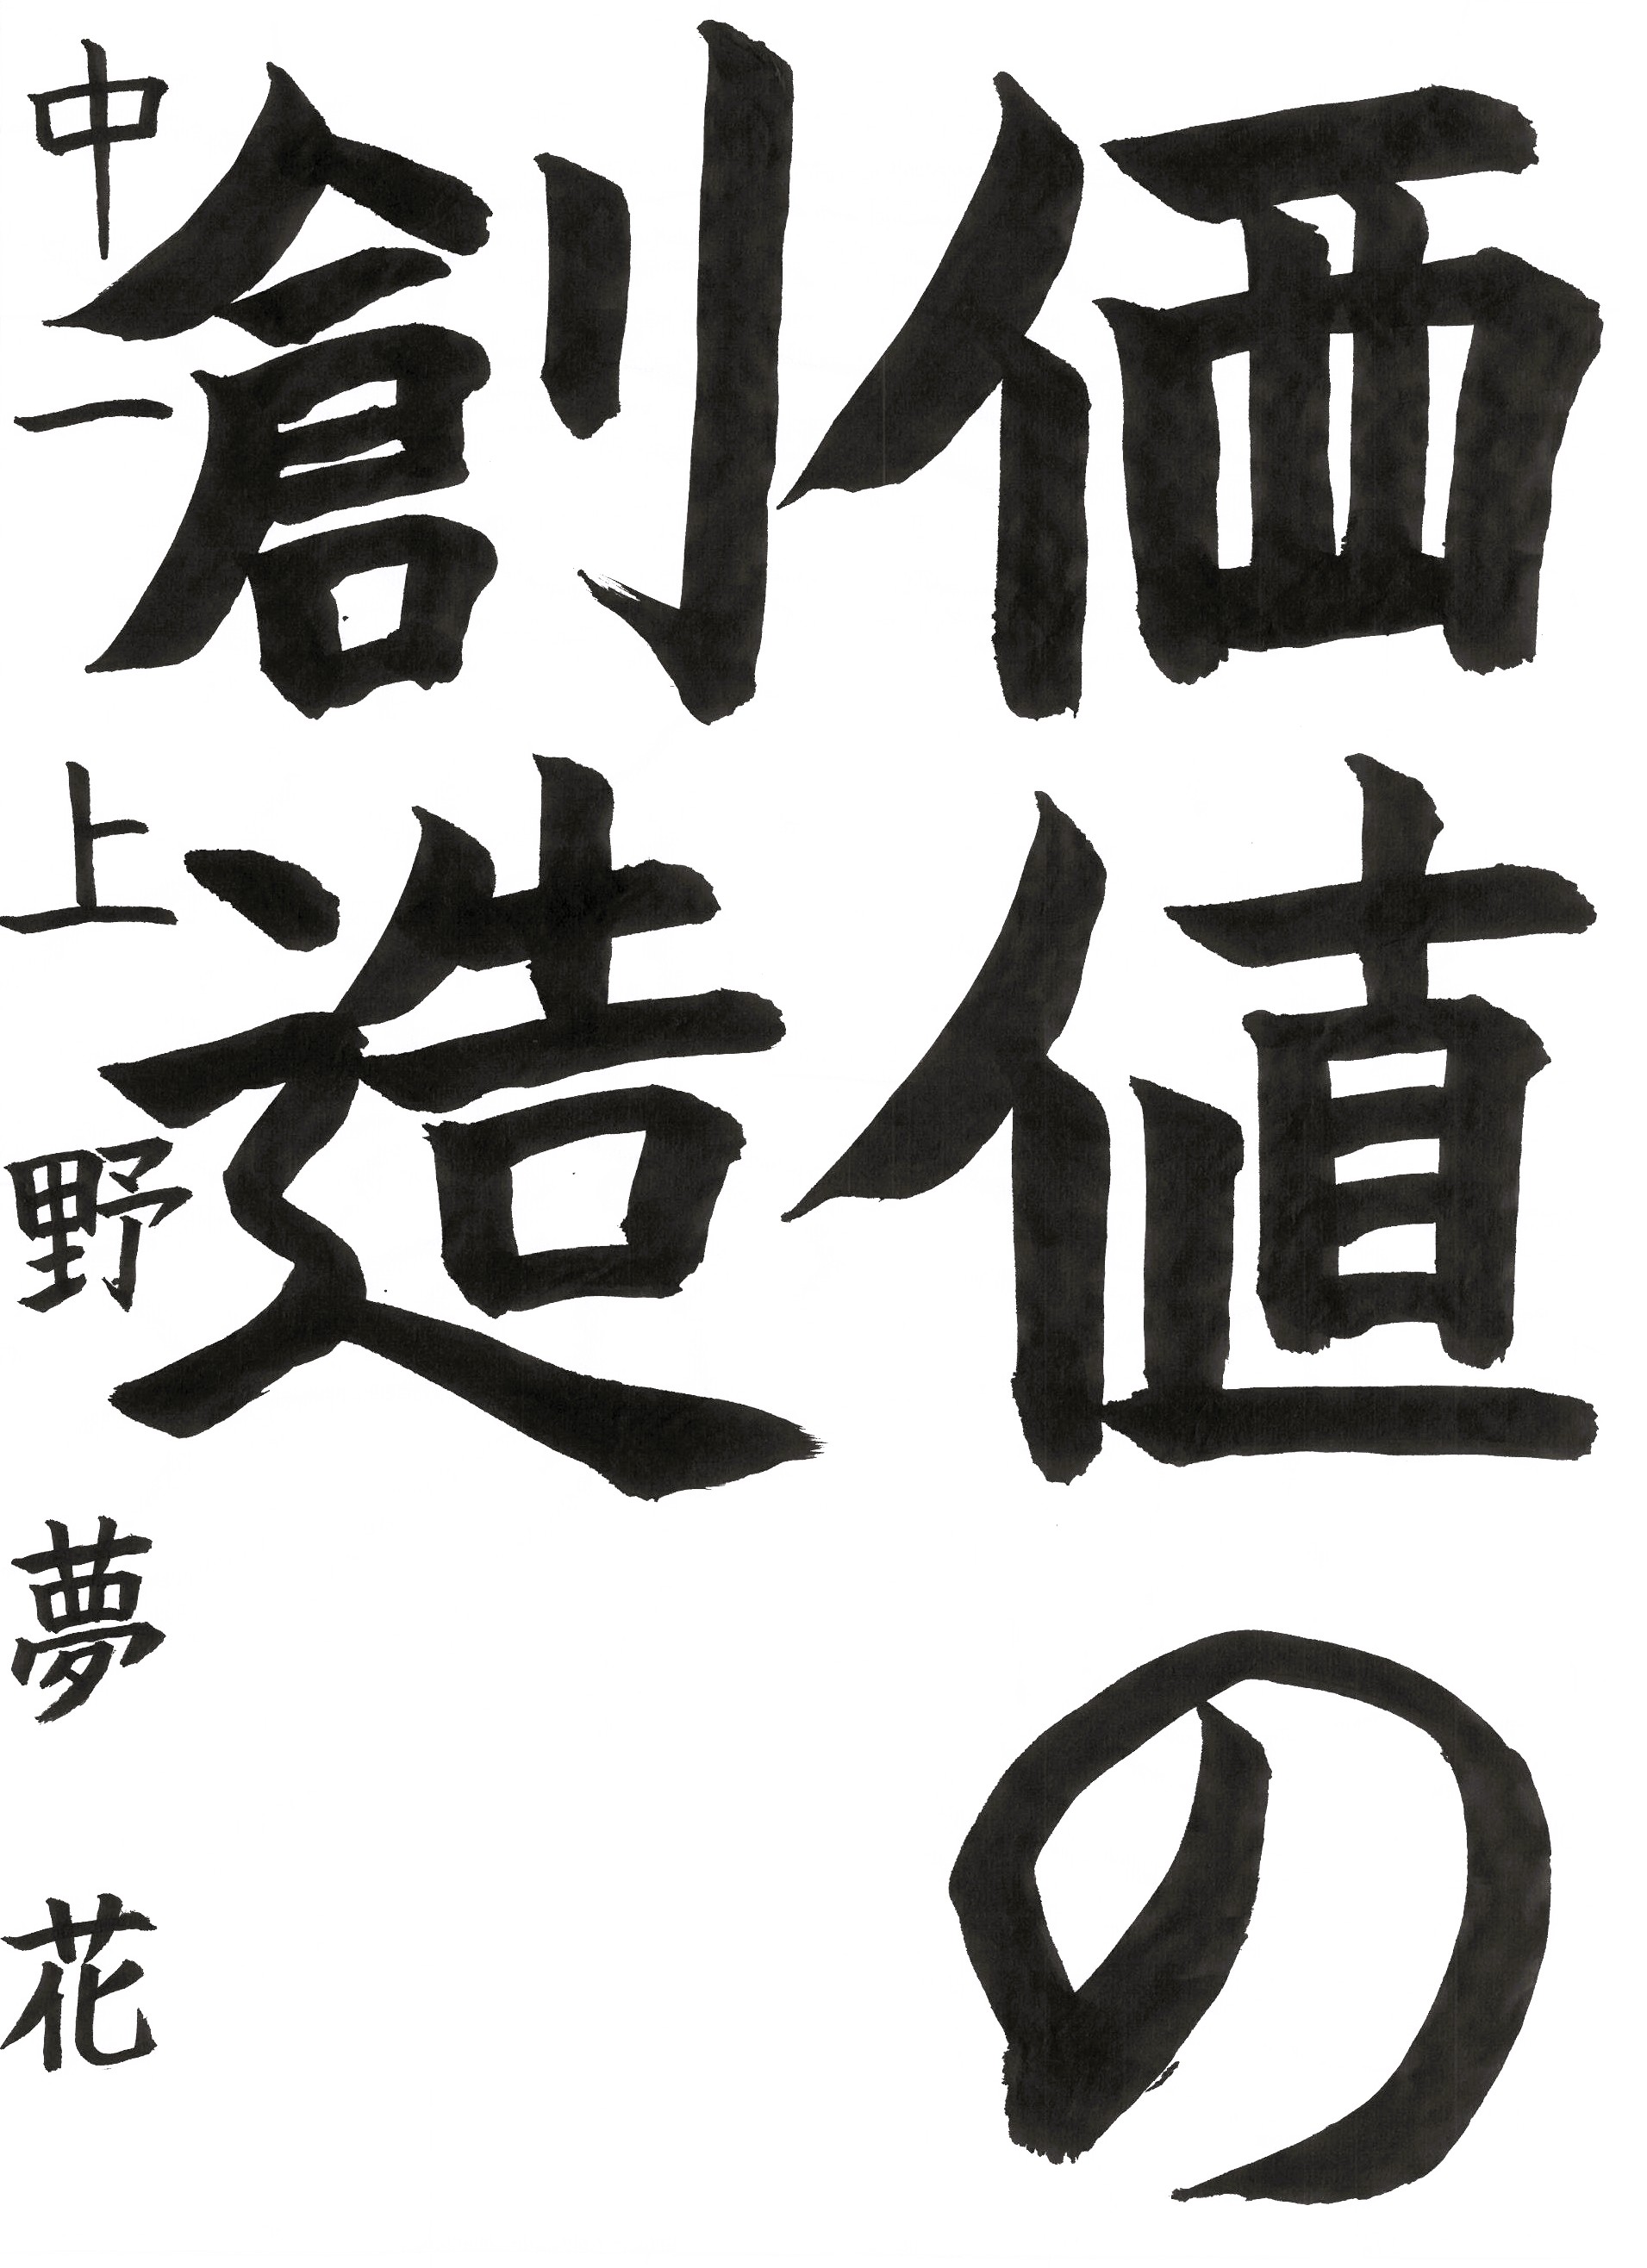 価値の
創造
中一 上野夢花